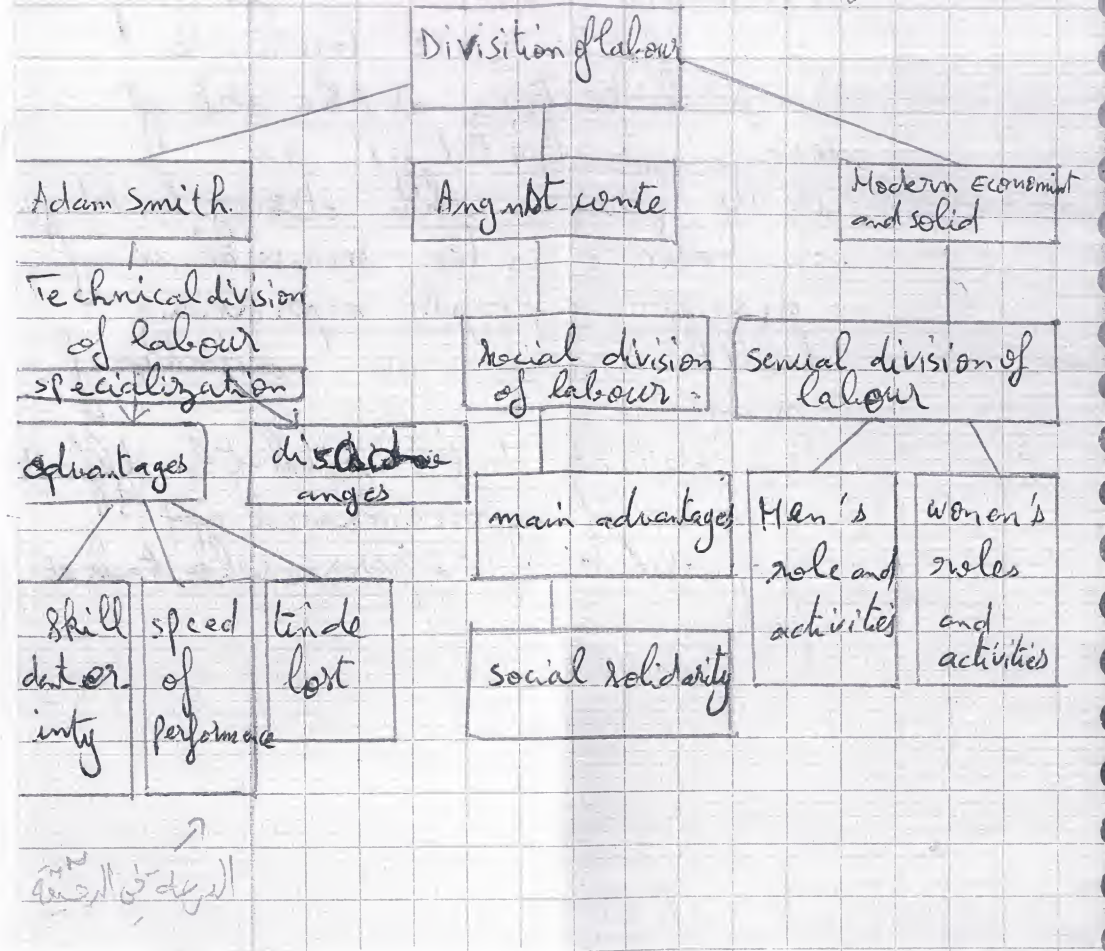 Divisition of labour
Adam Smith.
Angust conte
Modern Economint
and solid
Technical division
of labour
specialization
social division
of labour.
sexual division of
labour
advantages
dis
anges
main advantages
Men's
role and
activities
women's
roles
and
activities
skill
dat er.
inty
speed
of
performence
tinde
lost
social solidarity
السرعة في